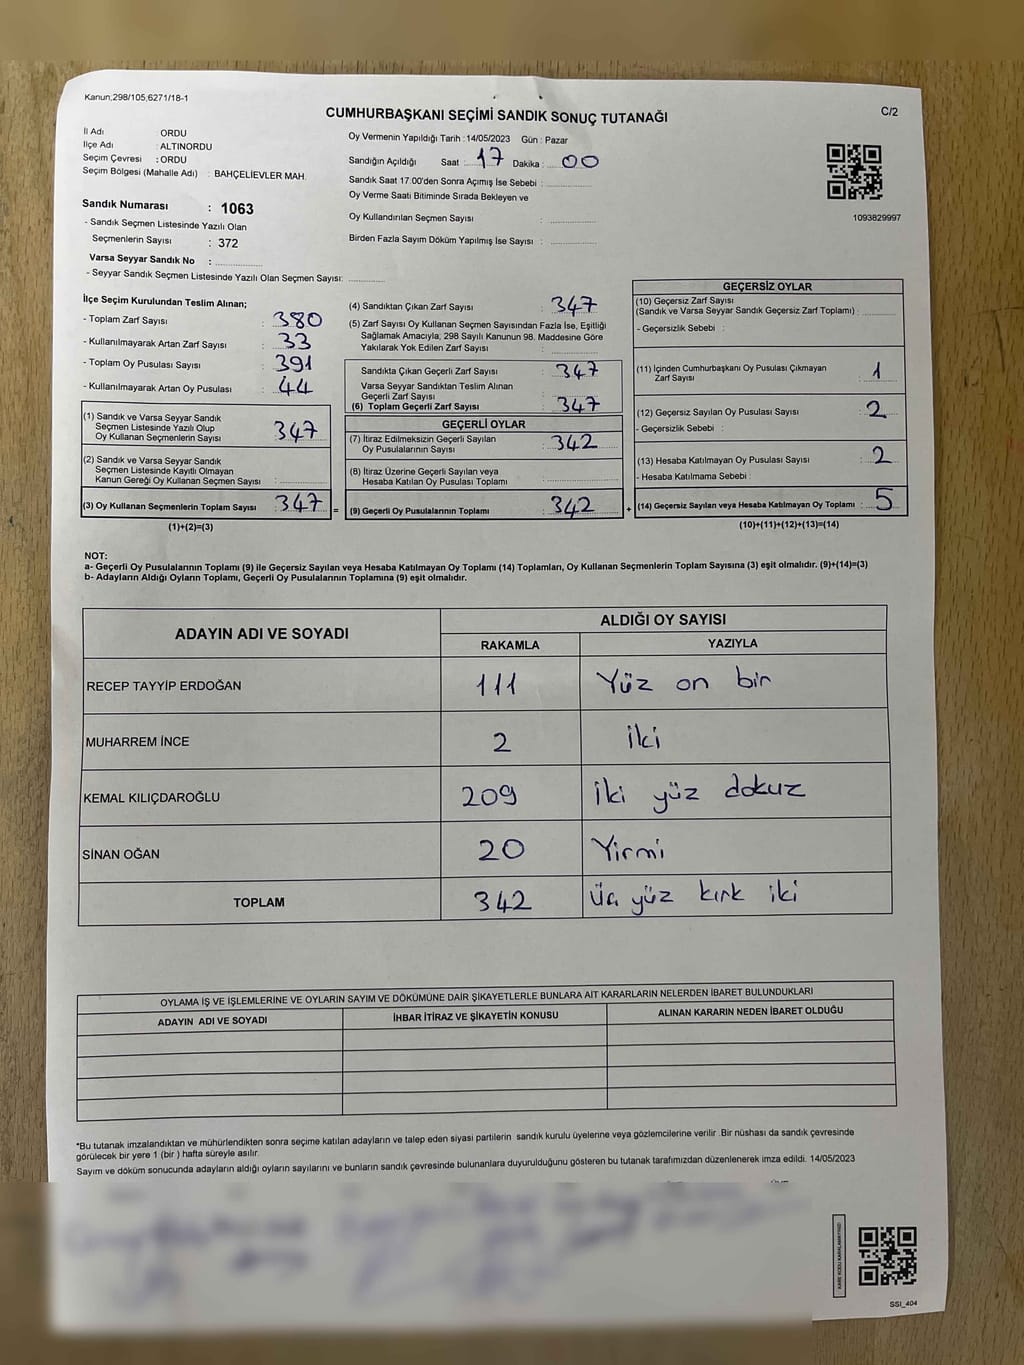 Kanun;298/105;6271/18-1
C/2
CUMHURBAŞKANI SEÇİMİ SANDIK SONUÇ TUTANAĞI
İl Adı ORDU
İlçe Adı : ALTINORDU
Seçim Çevresi : ORDU
Seçim Bölgesi (Mahalle Adı) : BAHÇELİEVLER MAH.
Sandık Numarası : 1063
- Sandık Seçmen Listesinde Yazılı Olan
Seçmenlerin Sayısı : 372
Varsa Seyyar Sandık No :
- Seyyar Sandık Seçmen Listesinde Yazılı Olan Seçmen Sayısı:
Oy Vermenin Yapıldığı Tarih : 14/05/2023 Gün : Pazar
Sandığın Açıldığı Saat : 17 Dakika : 00
Sandık Saat 17:00'den Sonra Açımış İse Sebebi :
Oy Verme Saati Bitiminde Sırada Bekleyen ve
Oy Kullandırılan Seçmen Sayısı :
Birden Fazla Sayım Döküm Yapılmış İse Sayısı :
1093829997
İlçe Seçim Kurulundan Teslim Alınan;
- Toplam Zarf Sayısı : 380
- Kullanılmayarak Artan Zarf Sayısı : 33
- Toplam Oy Pusulası Sayısı : 391
- Kullanılmayarak Artan Oy Pusulası : 44
(1) Sandık ve Varsa Seyyar Sandık
Seçmen Listesinde Yazılı Olup
Oy Kullanan Seçmenlerin Sayısı : 347
(2) Sandık ve Varsa Seyyar Sandık
Seçmen Listesinde Kayıtlı Olmayan
Kanun Gereği Oy Kullanan Seçmen Sayısı :
(3) Oy Kullanan Seçmenlerin Toplam Sayısı : 347
(1)+(2)=(3)
(4) Sandıktan Çıkan Zarf Sayısı : 347
(5) Zarf Sayısı Oy Kullanan Seçmen Sayısından Fazla İse, Eşitliği
Sağlamak Amacıyla, 298 Sayılı Kanunun 98. Maddesine Göre
Yakılarak Yok Edilen Zarf Sayısı :
Sandıkta Çıkan Geçerli Zarf Sayısı : 347
Varsa Seyyar Sandıktan Teslim Alınan
Geçerli Zarf Sayısı :
(6) Toplam Geçerli Zarf Sayısı : 347
GEÇERLİ OYLAR
(7) İtiraz Edilmeksizin Geçerli Sayılan
Oy Pusulalarının Sayısı : 342
(8) İtiraz Üzerine Geçerli Sayılan veya
Hesaba Katılan Oy Pusulası Toplamı :
(9) Geçerli Oy Pusulalarının Toplamı : 342
GEÇERSİZ OYLAR
(10) Geçersiz Zarf Sayısı
(Sandık ve Varsa Seyyar Sandık Geçersiz Zarf Toplamı) :
- Geçersizlik Sebebi :
(11) İçinden Cumhurbaşkanı Oy Pusulası Çıkmayan
Zarf Sayısı : 1
(12) Geçersiz Sayılan Oy Pusulası Sayısı : 2
- Geçersizlik Sebebi :
(13) Hesaba Katılmayan Oy Pusulası Sayısı : 2
- Hesaba Katılmama Sebebi :
(14) Geçersiz Sayılan veya Hesaba Katılmayan Oy Toplamı : 5
(10)+(11)+(12)+(13)=(14)
NOT:
a- Geçerli Oy Pusulalarının Toplamı (9) ile Geçersiz Sayılan veya Hesaba Katılmayan Oy Toplamı (14) Toplamları, Oy Kullanan Seçmenlerin Toplam Sayısına (3) eşit olmalıdır. (9)+(14)=(3)
b- Adayların Aldığı Oyların Toplamı, Geçerli Oy Pusulalarının Toplamına (9) eşit olmalıdır.
ADAYIN ADI VE SOYADI ALDIĞI OY SAYISI
RAKAMLA YAZIYLA
RECEP TAYYİP ERDOĞAN 111 Yüz on bir
MUHARREM İNCE 2 iki
KEMAL KILIÇDAROĞLU 209 iki yüz dokuz
SİNAN OĞAN 20 Yirmi
TOPLAM 342 Üç yüz kırk iki
OYLAMA İŞ VE İŞLEMLERİNE VE OYLARIN SAYIM VE DÖKÜMÜNE DAİR ŞİKAYETLERLE BUNLARA AİT KARARLARIN NELERDEN İBARET BULUNDUKLARI
ADAYIN ADI VE SOYADI İHBAR İTİRAZ VE ŞİKAYETİN KONUSU ALINAN KARARIN NEDEN İBARET OLDUĞU
*Bu tutanak imzalandıktan ve mühürlendikten sonra seçime katılan adayların ve talep eden siyasi partilerin sandık kurulu üyelerine veya gözlemcilerine verilir .Bir nüshası da sandık çevresinde
görülecek bir yere 1 (bir ) hafta süreyle asılır.
Sayım ve döküm sonucunda adayların aldığı oyların sayılarını ve bunların sandık çevresinde bulunanlara duyurulduğunu gösteren bu tutanak tarafımızdan düzenlenerek imza edildi. 14/05/2023
KARE KODU KARALAMAYINIZ!
SSI_404